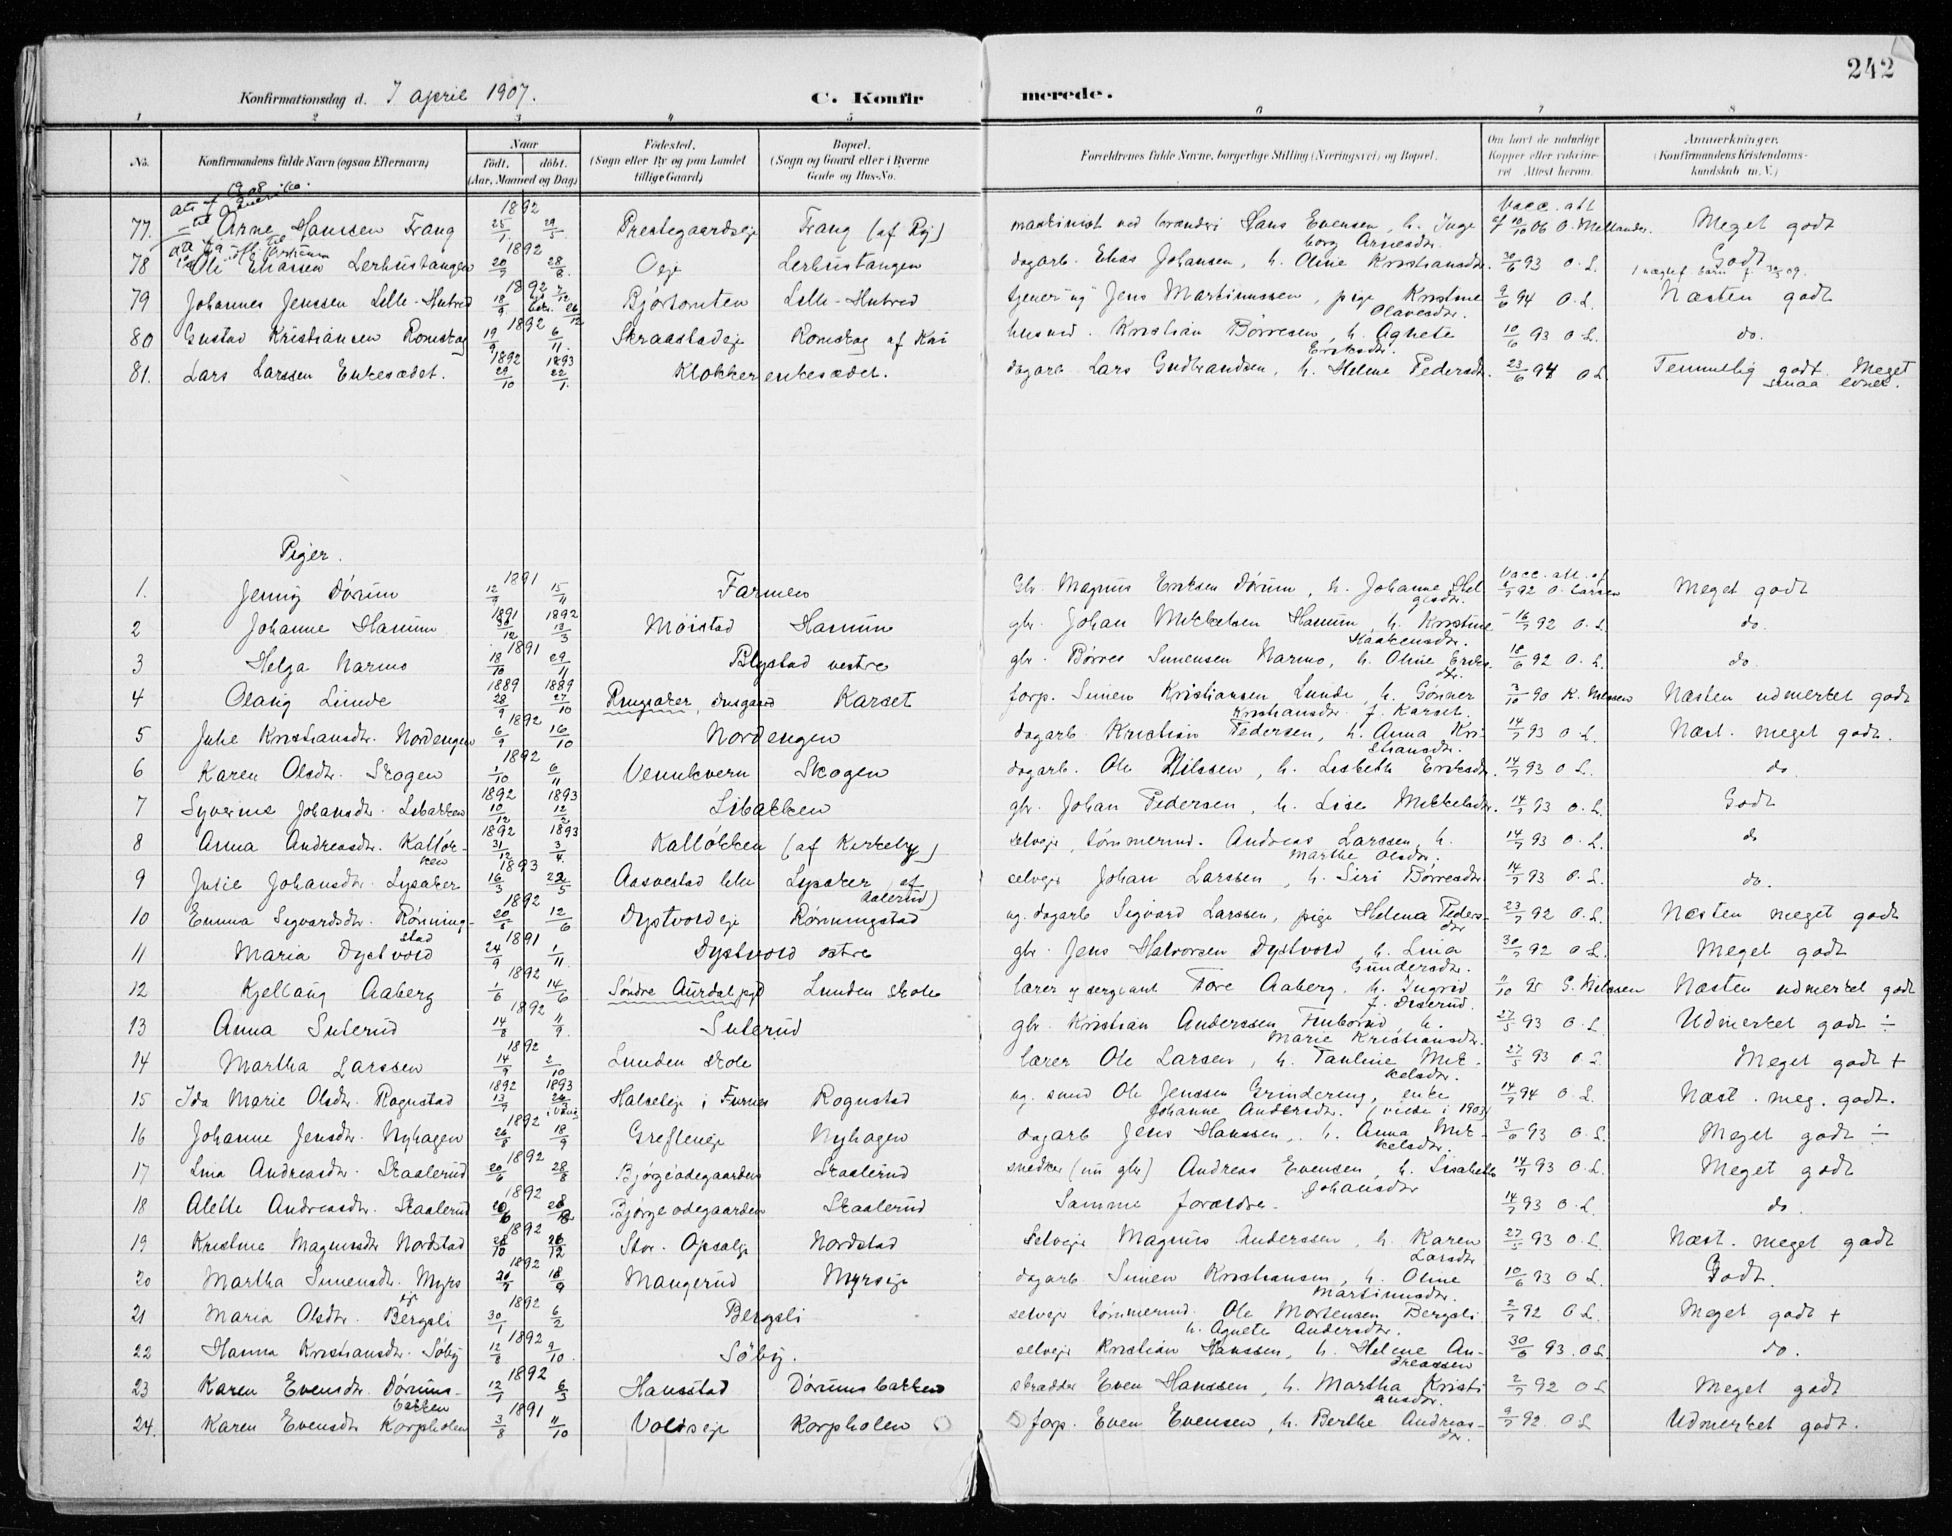 242
Konfirmationsdag d. 7 april 1907. C. Konfirmerede.
1 2 3 4 5 6 7 8
No. Konfirmandens fulde Navn (ogsaa Efternavn) Naar født, døbt. (Aar, Maaned og Dag) Fødested. (Sogn eller By og paa Landet tillige Gaard) Bopæl. (Sogn og Gaard eller i Byerne Gade og Hus-No. Forældrenes fulde Navne, borgerlige Stilling (Næringsvei) og Bopæl. Om havt de naturlige Kopper eller vaccineret. Attest herom. Anmærkninger. (Konfirmandens Kristendomskundskab m. V.)
77. Arne Hanssen Frang 1892 25/1 29/5 Prestegaardseje Frang (af Ryj) maskinist ved brænderi Hans Evensen, h. Ingeborg Arnesdr. Vacc. att. af 10/10 06 O. Mellander. Meget godt
78 Ole Eliassen Lerhustangen 1892 20/7 28/8 Oeje Lerhustangen dagarb. Elias Johansen, h. Oline Kristiansdr. 30/6 93 O. L. Godt
79 Johannes Jenssen Lille-Hubred 1892 18/9 Bjørtomten Lille-Hubred tjener ug. Jens Martinussen, pige Kristine Olavesdr. 9/6 94 O. L. Næsten godt
80 Gustav Kristiansen Romskog 1892 19/9 6/11. Skraastadeje Romskog af Kai husmd. Kristian Børresen, h. Agnete Eriksdr. 10/6 93 O. L. do.
81. Lars Larssen Enkesædet. 1892 29/10 1893 22/1. Klokkerenkesædet. dagarb Lars Gudbrandsen, h. Helene Pedersdr. 23/6 94 O L. Temmelig godt. Meget smaa evner.
Piger.
1. Jenny Dørum 1891 12/9 15/11 Farmen Gbr. Magnus Eriksen Dørum, h. Johanne Helgesdr. Vacc. att. af 8/7 92 O. Larsen Meget godt
2 Johanne Hamum 1891 30/12 1892 13/3 Moistad Hamum gbr. Johan Mikkelsen Hamum, h. Kristine Haakensdr. 16/7 92 O. L. do.
3 Helga Narmo 1891 18/10 29/11 Blystad vestre gbr. Børre Simensen Narmo, h. Oline Eriksdr. 18/6 92 O. L. do
4 Olaug Linde 1889 28/9 1889 27/10 Ringsaker, Karset forp. Simen Kristiansen Lunde, h. Gønner Kristiansdr. f. Karset. 3/10 90 K. Nilssen Næsten udmerket godt
5 Julie Kristiansdr. Nordengen 1892 6/9 16/10 Nordengen dagarb. Kristian Pedersen, h. Anna Kristiansdr. 14/7 93 O. L. Næst. meget godt.
6 Karen Olsdr. Skogen 1892 1/10 6/11 Vennkvern Skogen dagarb. Ole Nilssen, h. Lisbeth Eriksdr. 14/7 93 O. L. do.
7 Syverine Johansdr. Libakken 1892 10/12 1893 12/2 Libakken gbr. Johan Pedersen, h. Lise Mikkelsdr. 14/7 93 O. L. Godt
8 Anna Andreasdr. Kalløkken 1892 31/12 1893 3/4. Kalløkken (af Kirkeby) selveje, tømmermd. Andreas Larssen, h. Marthe Olsdr. 14/7 93 O. L. do
9 Julie Johansdr. Lysaker 1893 16/3 22/5 Aasvestad lille Lysaker af Aalerud) selveje Johan Larssen, h. Siri Børresdr 14/7 93 O. L. do.
10 Emma Sigvardsdr. Rønningstad 1892 20/5 12/6 Dystvoldeje Rønningstad ug. dagarb Sigvard Larssen, pige Helena Pedersdr 23/7 92 O. L. Næsten meget godt
11 Maria Dystvold 1891 24/9 1/11. Dystvold østre gbr. Jens Halvorsen Dystvold, h. Lina Gundersdr. 30/7 92 O L. Meget godt
12 Kjellaug Aaberg 1892 1/6 14/6 Søndre Aurdal pgd Lunden skole lærer og sergiant Tore Aaberg. h. Ingrid f. 11/10 95 S. Nilssen Næsten udmerket godt
13 Anna Suterud 1892 14/8 11/9. Suterud gbr. Kristian Anderssen, h. Marie Kristiansdr. 27/5 93 O. L. Udmerket godt ÷
14 Martha Larssen 1892 14/9 2/10 Lunden skole lærer Ole Larsen, h. Pauline Mikkelsdr. 27/5 93 O. L. Meget godt +
15 Ida Marie Olsdr. Rognstad 1892 13/9 1893 26/3 Halseteje i Furnes Rognstad ug. smed Ole Jenssen Grindering, enke Johanne Andersdr. (viede i 1903) 14/7 94 O. L. Næst. meg. godt.
16 Johanne Jensdr. Nyhagen 1892 26/8 18/9 Grefteneje Nyhagen dagarb Jens Hanssen, h. Anna Mikkelsdr. 3/6 93 O. L. Meget godt ÷
17 Lina Andreasdr. Skaalerud 1892 20/6 28/8 Bjørgeødegaarden Skaalerud snedker (nu gbr) Andreas Evensen, h. Lisabeth Johansdr 14/7 93 O. L. Meget godt
18 Alette Andreasdr. Skaalerud 1892 20/6 28/8 Bjørgeødegaarden Skaalerud Samme forældre. 14/7 93 O. L. do.
19 Kristine Magnusdr Nordstad 1892 28/10 26/12 Stor. Opsalje Nordstad Selveje Magnus Anderssen, h. Karen Larsdr 27/5 93 O. L. Næst. meget godt
20 Martha Simensdr. Myrseje 1892 20/7 18/9 Mangerud Myrseje dagarb Simen Kristiansen, h. Oline Martinusdr. 10/6 93 O L. Godt.
21 Maria Olsdr. Bergsli 1892 30/1 6/2 Bergsli selveje tømmermd. Ole Mortensen Bergsli h. Agnete Andersdr. 2/7 92 O L. Meget godt +
22 Hanna Kristiansdr. Søby 1892 12/8 9/10. Søby. selveje Kristian Hanssen, h. Helene Andreassen 30/6 93. O L. do.
23 Karen Evensdr. Dørumsbakken 1892 12/1 6/3 Hanstad Dørumsbakken skrædder Even Hanssen, h. Martha Kristiansdr. 2/7 92 O L Meget godt
24. Karen Evensdr Korpholen 1891 3/8 11/10 Voldseje Korpholen forp. Even Evensen, h. Berthe Andreasdr. 9/7 92. O L Udmerket godt.